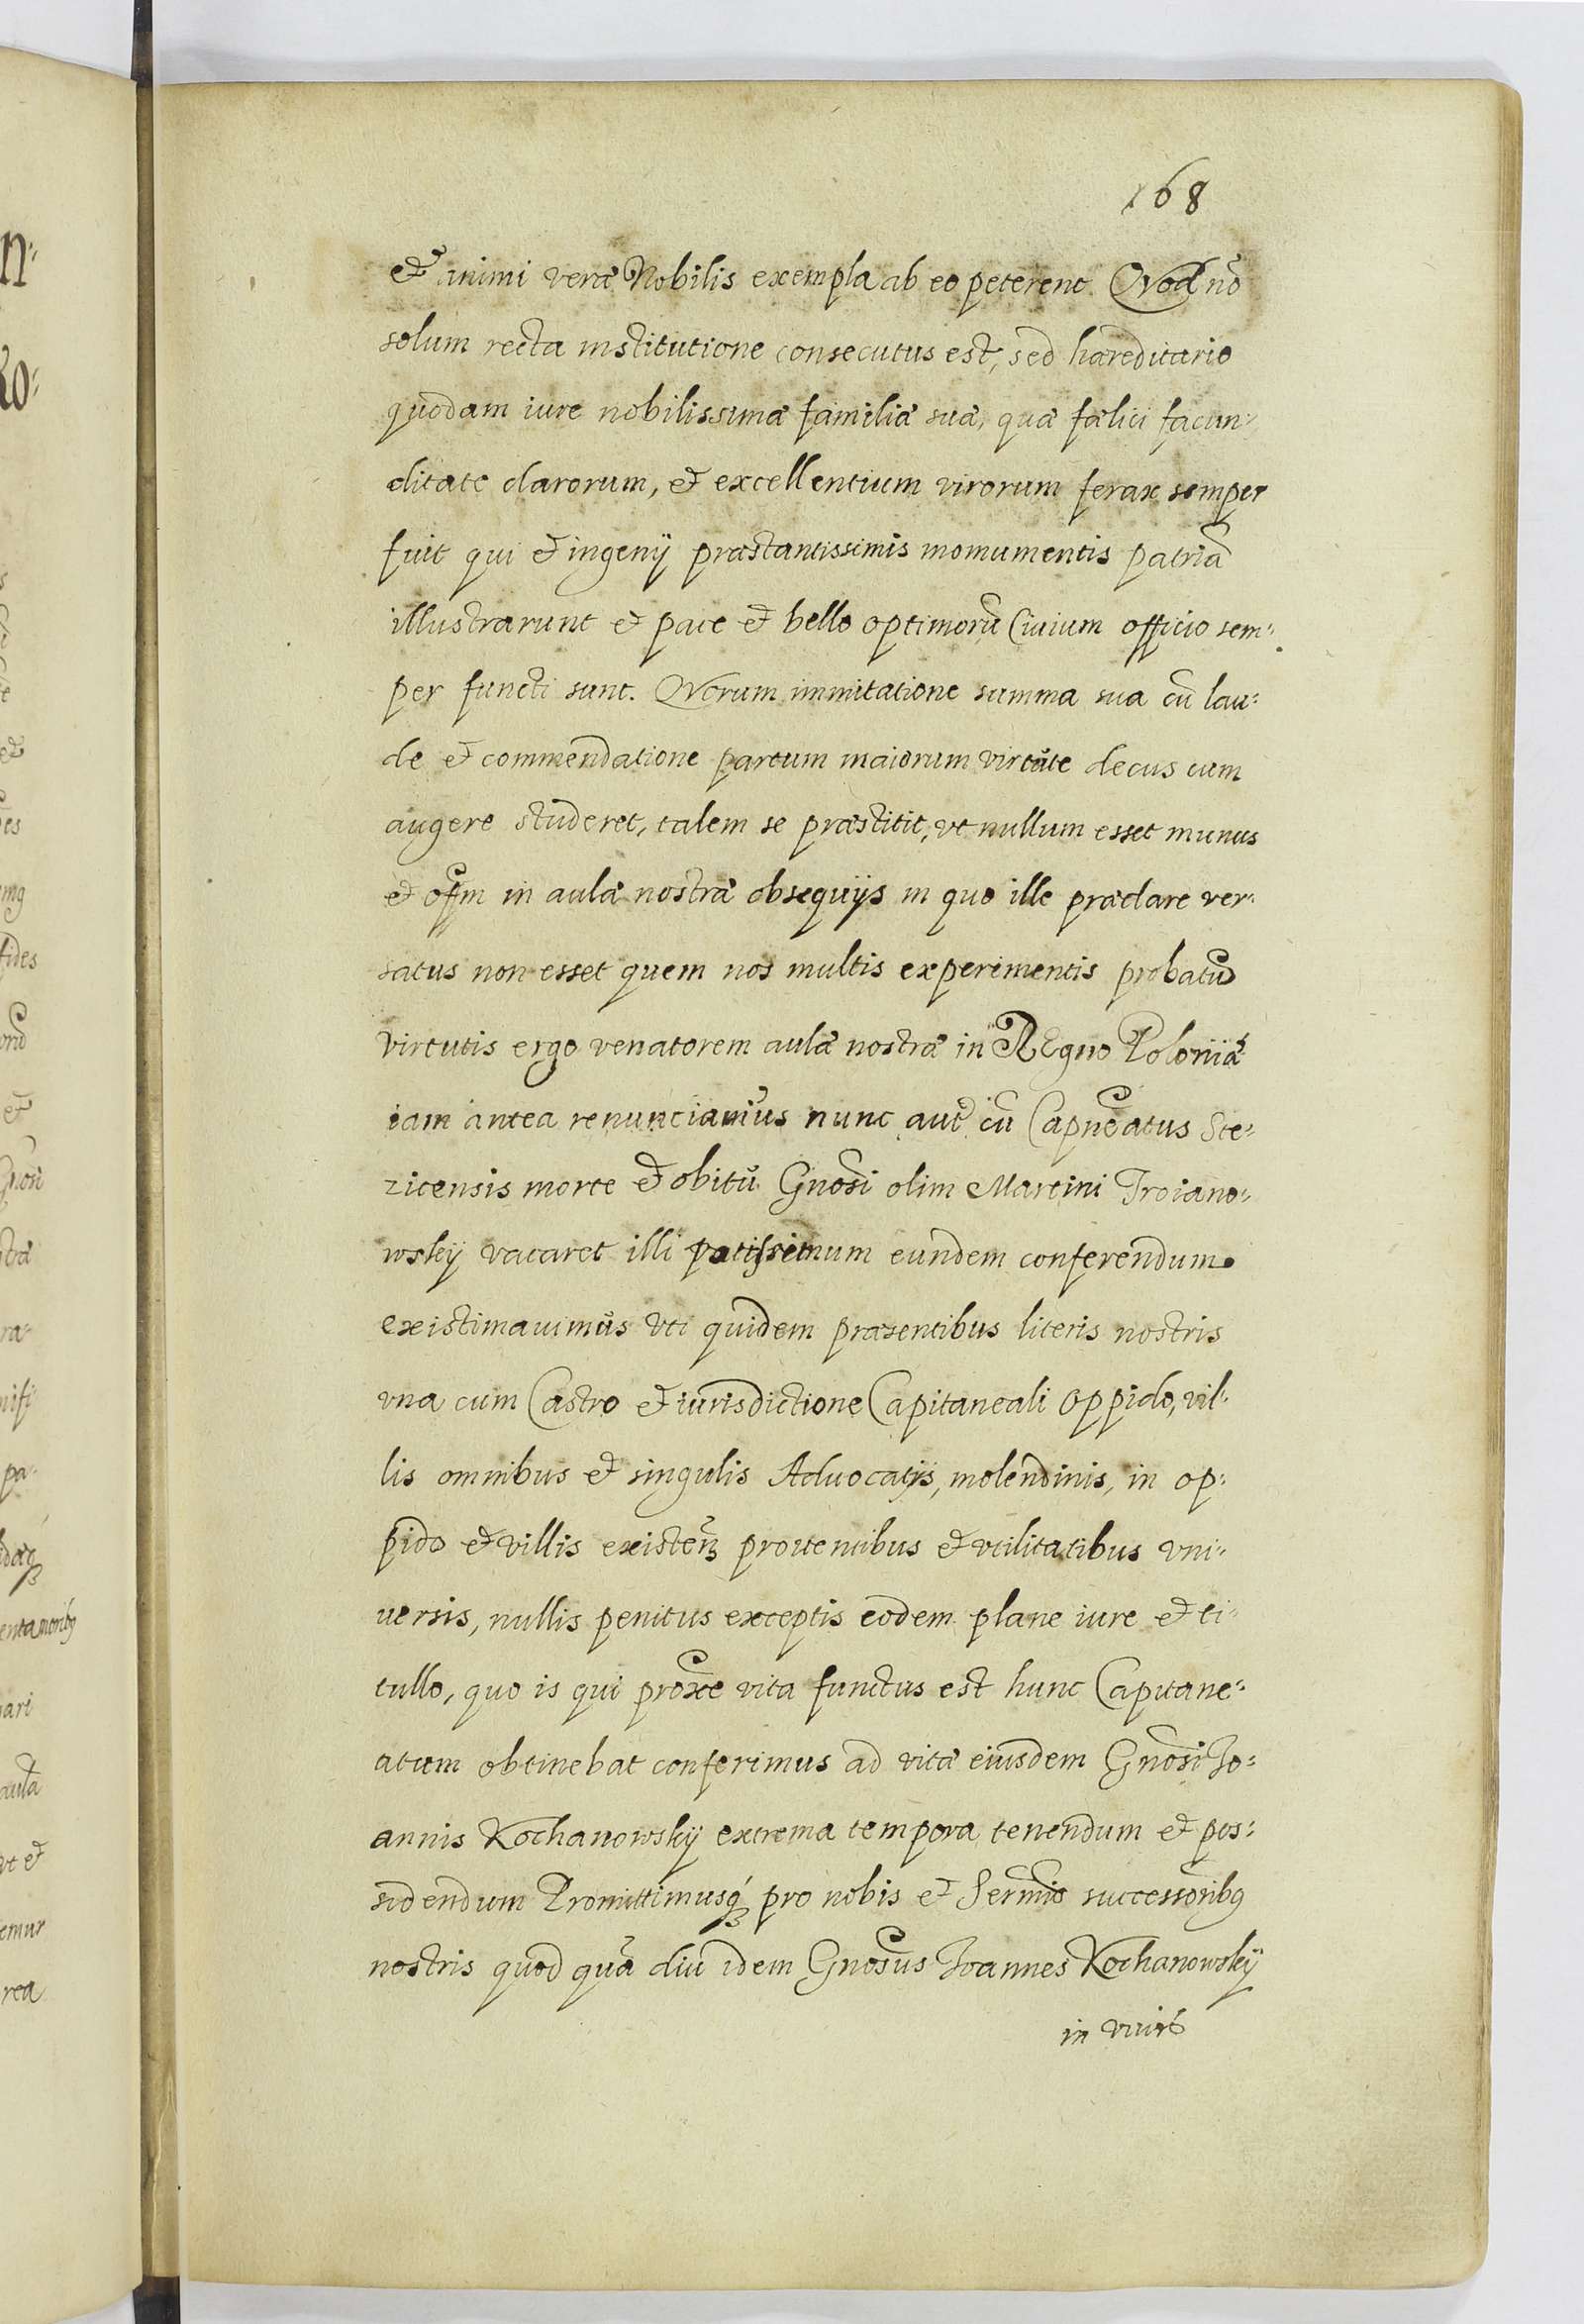 168
et animi veræ Nobilis exempla ab eo peterent. Qvod nō
solum recta institutione consecutus est, sed hæreditario
quodam iure nobilissimæ familiæ suæ, quæ fælici facun-
ditate clarorum, et excellentium virorum ferax semper
fuit qui et ingenij præstantissimis momumentis patriā
illustrarunt et pace et bello optimorū Ciuium officio sem-
per functi sunt. Qvorum immitatione summa sua cū lau-
de et commendatione partum maiorum virtute decus cum
augere studeret, talem se præstitit, vt nullum esset munus
et offm in aulæ nostræ obsequijs in quo ille præclare ver-
satus non esset quem nos multis experimentis probatū
virtutis ergo venatorem aulæ nostræ in REgno Poloniæ
iam antea renunciamus nunc aut cū Capneatus Ste-
zicensis morte et obitū Gnosi olim Martini Troiano-
wskÿ vacaret illi potissimum eundem conferendum
existimauimus vti quidem præsentibus literis nostris
vna cum Castro et iurisdictione Capitaneali oppido, vil-
lis omnibus et singulis Aduocatijs, molendinis, in op-
pido et villis existen prouentibus et vtilitatibus vni-
uersis, nullis penitus exceptis eodem plane iure et ti-
tullo, quo is qui proxe vita functus est hunc Capitane-
atum obtinebat conferimus ad vitæ eiusdem Gnosi Jo-
annis KochanowskIJ extrema tempora tenendum et pos-
sidendum Promittimusq; pro nobis et Sermis successoribq
nostris quod quā diu idem Gnosus Joannes Kochanowskÿ
in viuis